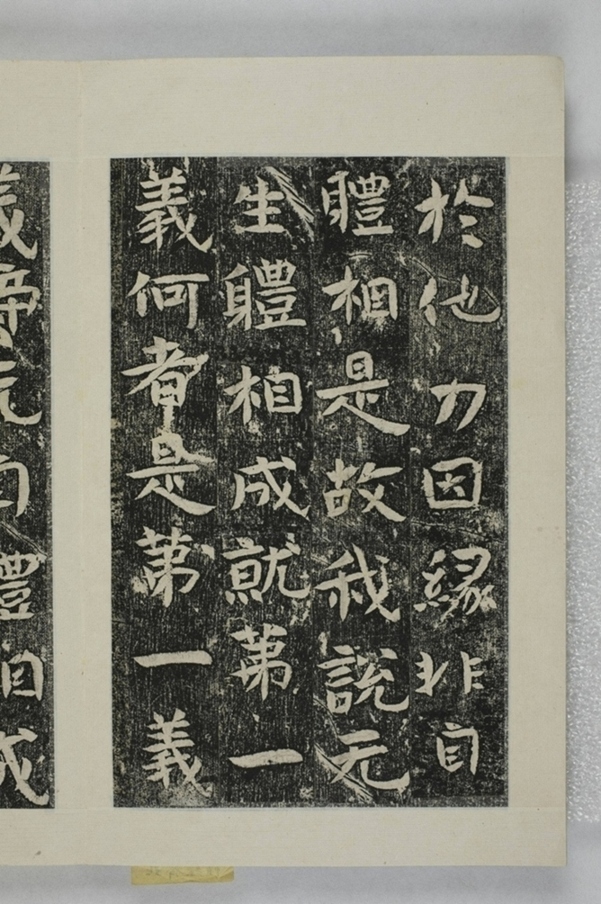 於他力因緣非自
體相是故我說无
生體相成就第一
義何者是第一義
義諦无自體相成